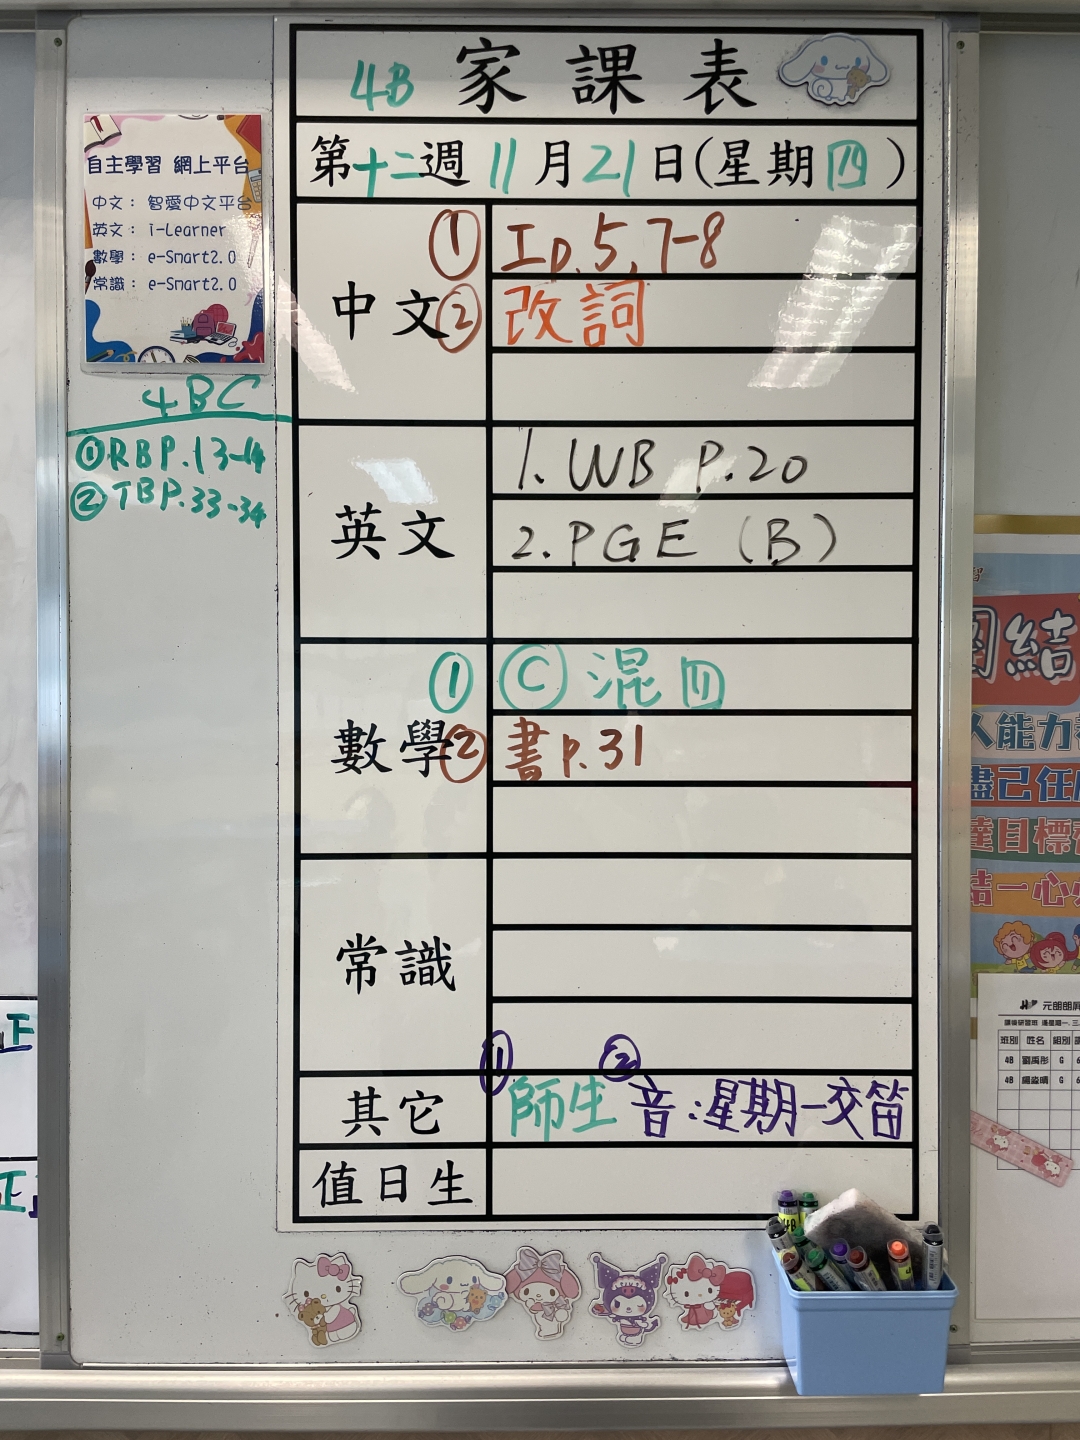 4B 家課表
第十二週 11月21日(星期四)
自主學習 網上平台
中文: 智愛中文平台
英文: i-Learner
數學: e-Smart2.0
常識: e-Smart2.0
4BC
① RB P.13-14
② TB P.33-34
中文
① 工p.5,7-8
② 改詞
英文
1. WB P.20
2. PGE (B)
數學
① Ⓒ 混四
② 書p.31
常識
其它
① 師生 ② 音:星期一交笛
值日生
結
人能力
盡己任
達目標
結一心
元朗朗屏
班別 姓名 組別
4B G 6
4B G 6
正
正